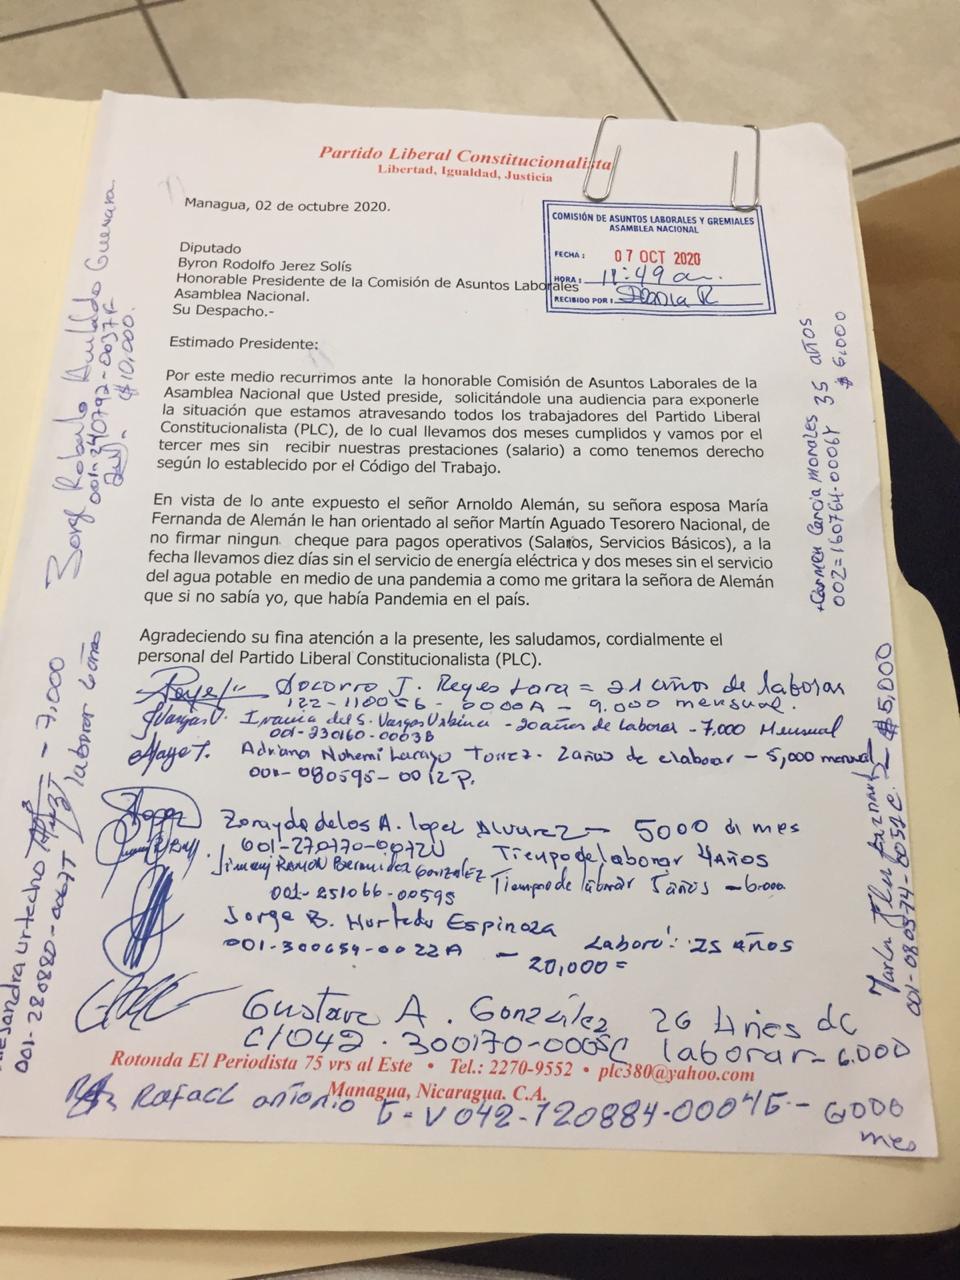 Partido Liberal Constitucionalista
Libertad, Igualdad, Justicia
Managua, 02 de octubre 2020.
COMISIÓN DE ASUNTOS LABORALES Y GREMIALES
ASAMBLEA NACIONAL
FECHA: 07 OCT 2020
HORA: 11:49 am.
RECIBIDO POR:
Diputado
Byron Rodolfo Jerez Solís
Honorable Presidente de la Comisión de Asuntos Laborales
Asamblea Nacional.
Su Despacho.-
Estimado Presidente:
Por este medio recurrimos ante la honorable Comisión de Asuntos Laborales de la
Asamblea Nacional que Usted preside, solicitándole una audiencia para exponerle
la situación que estamos atravesando todos los trabajadores del Partido Liberal
Constitucionalista (PLC), de lo cual llevamos dos meses cumplidos y vamos por el
tercer mes sin recibir nuestras prestaciones (salario) a como tenemos derecho
según lo establecido por el Código del Trabajo.
En vista de lo ante expuesto el señor Arnoldo Alemán, su señora esposa María
Fernanda de Alemán le han orientado al señor Martín Aguado Tesorero Nacional, de
no firmar ningun cheque para pagos operativos (Salarios, Servicios Básicos), a la
fecha llevamos diez días sin el servicio de energía eléctrica y dos meses sin el servicio
del agua potable en medio de una pandemia a como me gritara la señora de Alemán
que si no sabía yo, que había Pandemia en el país.
Agradeciendo su fina atención a la presente, les saludamos, cordialmente el
personal del Partido Liberal Constitucionalista (PLC).
Socorro J. Reyes Lara = 21 años de laborar
122-110056-0000A - 9.000 mensual.
JVargasU. del S. Vargas Urbina - 20 años de laborar - 7,000 Mensual
001-230160-0003B
Adriana Nohemi Torrez. 2 años de elaborar - 5,000 mensual
001-080595-0012P.
Zorayda de los A. lopez Alvarez - 5000 al mes
001-270170-0072U Tiempo de laborar 4 años
Ramon Bermudez Gonzalez Tiempo de laborar 5 años - 6.000
001-251066-0059S
Jorge B. Hurtado Espinoza
001-300654-0022A - Laboro: 25 años
20,000 =
Gustavo A. González 26 Años de
C/042-300170-0005C laborar - 6.000
Rotonda El Periodista 75 vrs al Este • Tel.: 2270-9552 • plc380@yahoo.com
Managua, Nicaragua. C.A.
Rafael antonio 042-120884-0004E - 6000
mes
Jorge Roberto Guevara.
001-240792-0037F
$10,000.
urtecho - 7,000
001-280880-0067T laborar 6 años
+Carmen Garcia Morales 35 años
002=160764-0006Y $ 6,000
$5,000
001-080574-0051C.